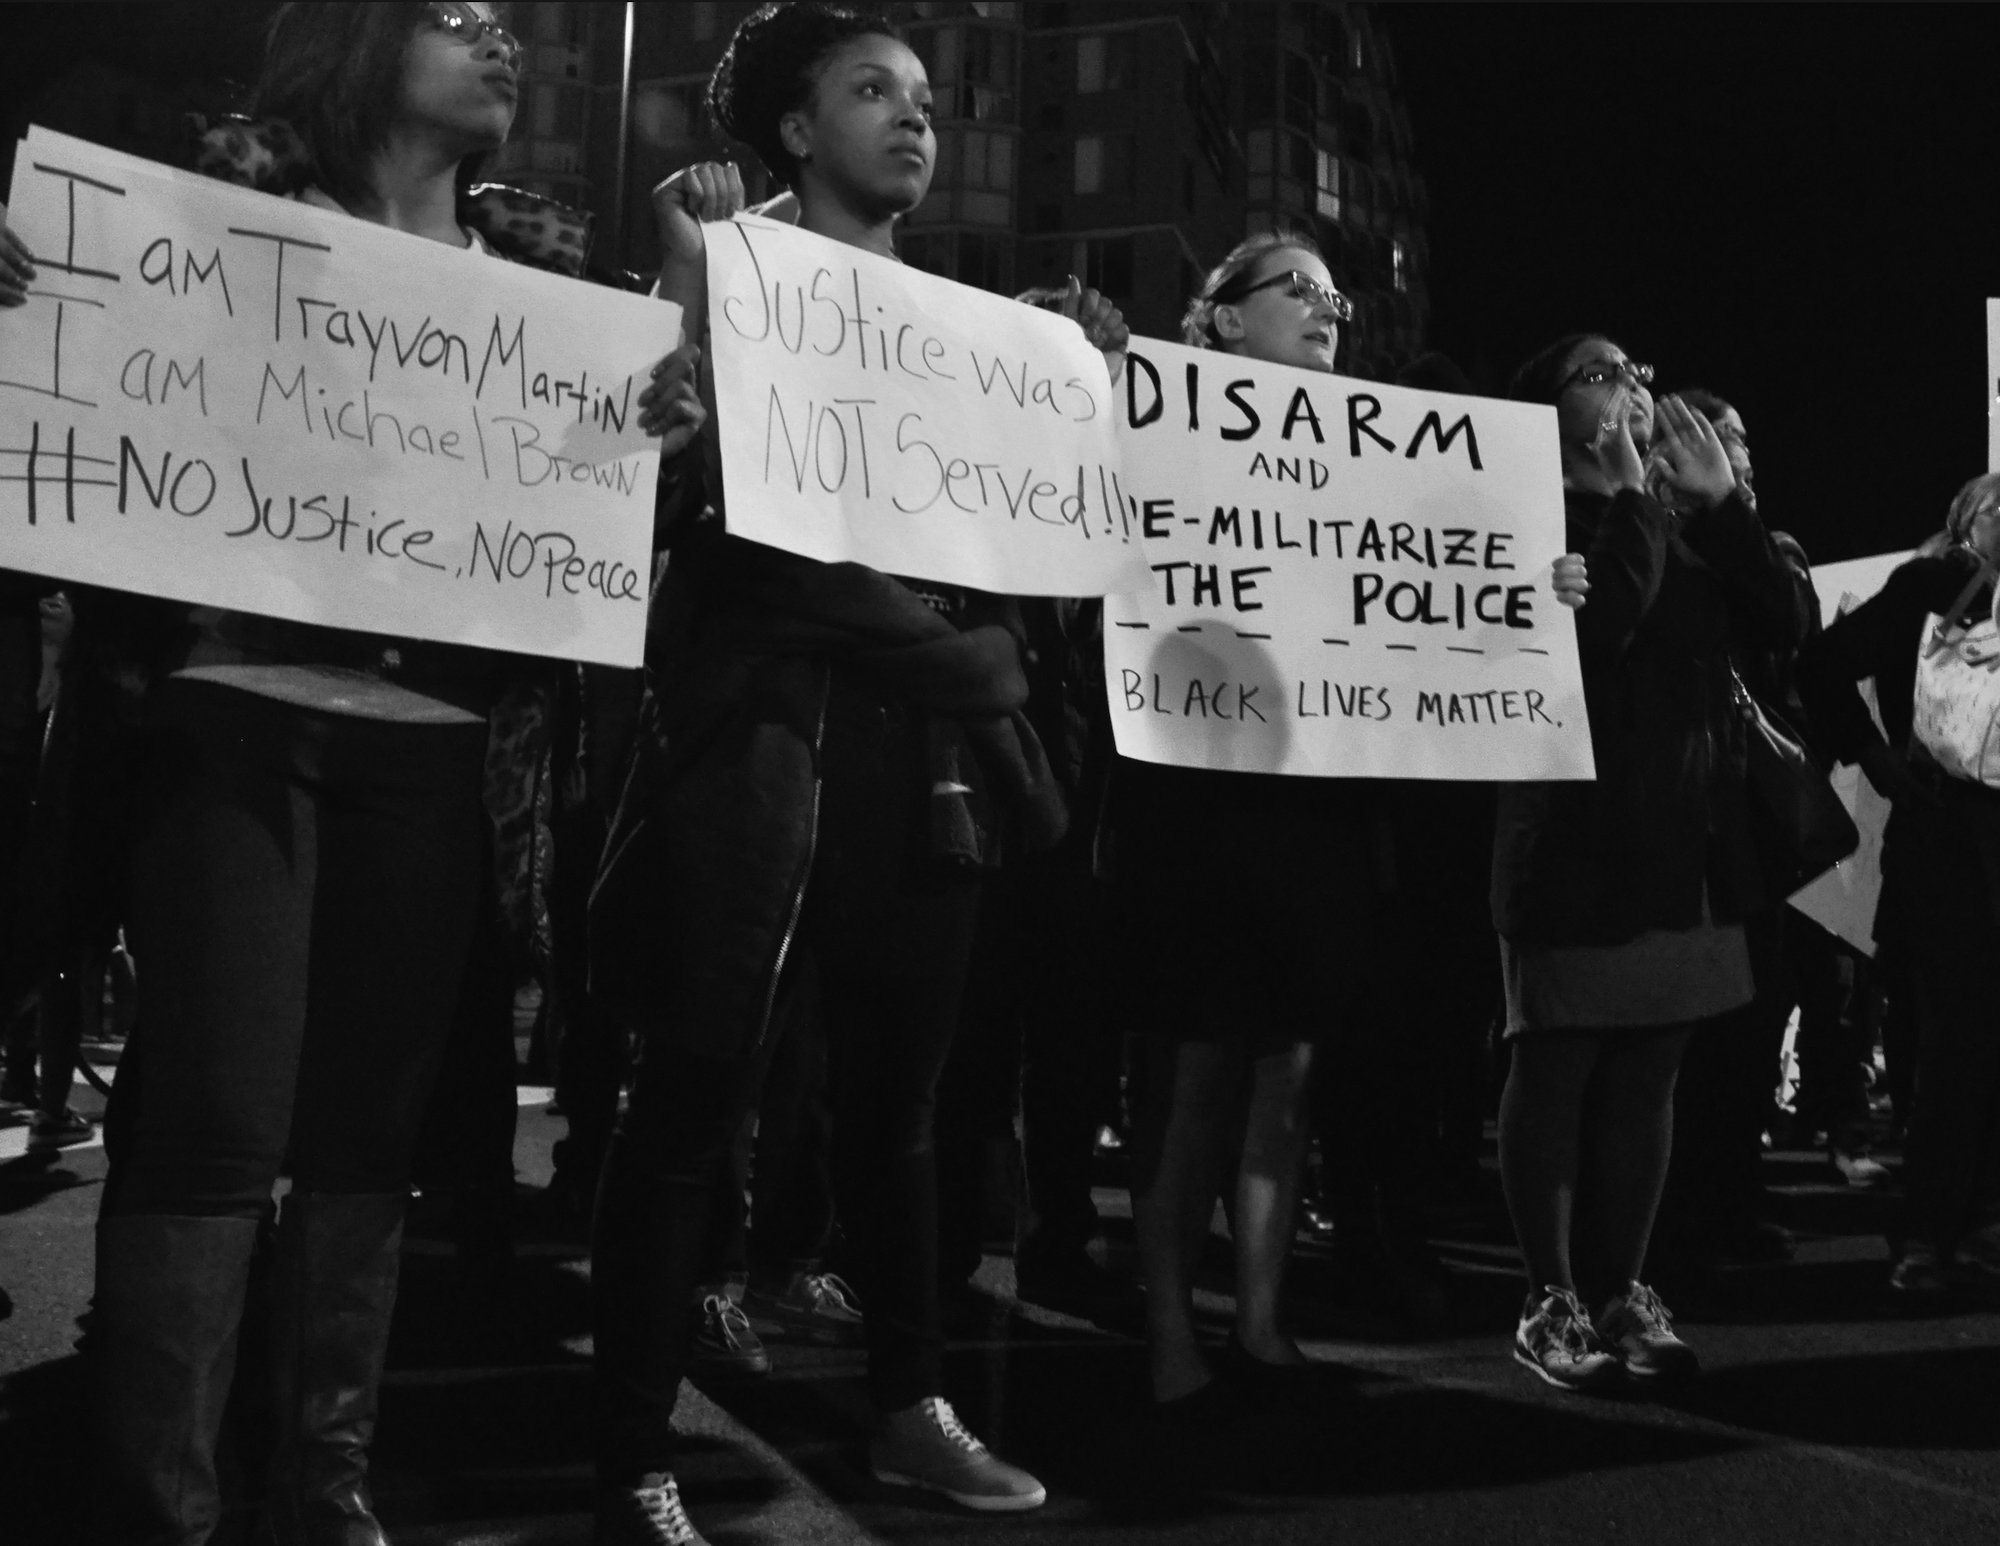 I am Trayvon Martin
I am Michael Brown
#NO Justice, NO Peace
Justice was
NOT Served!!
DISARM
AND
E-MILITARIZE
THE POLICE
BLACK LIVES MATTER.